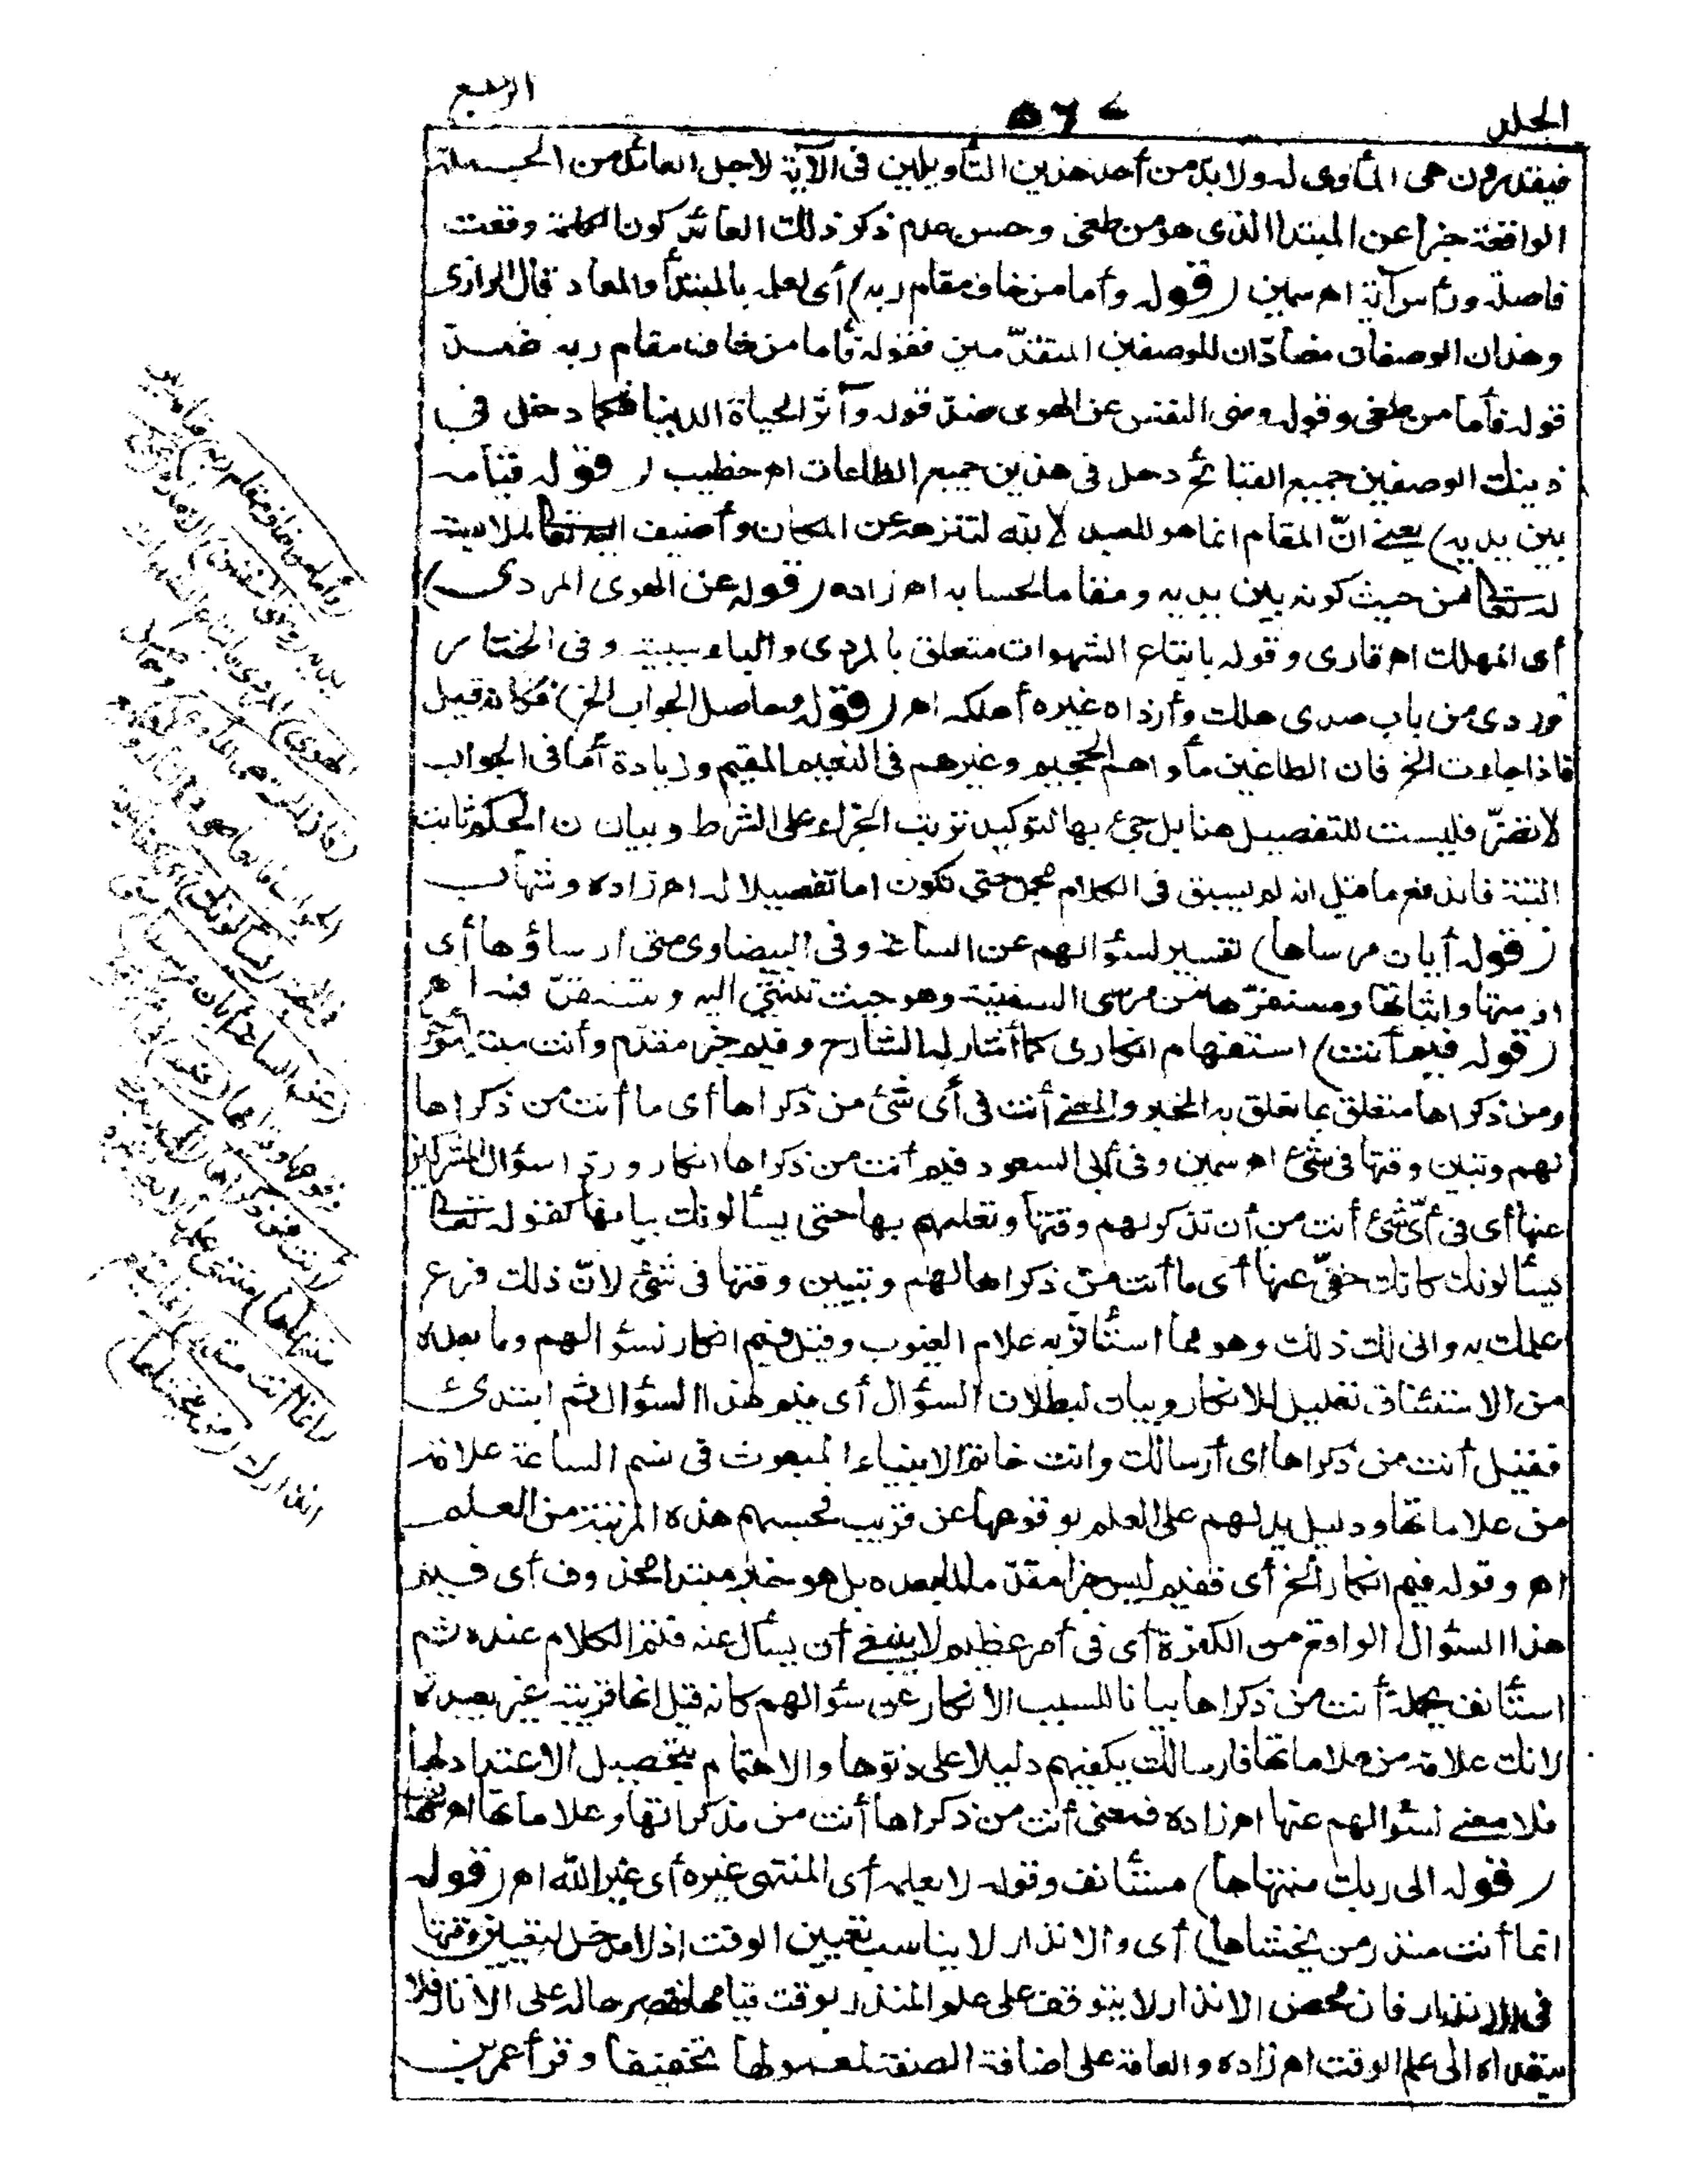 الجلد
٥٦٧
الرابع
فيقدرون هى المأوى له ولا بد من أحد هذين التأويلين فى الآية لاجل العائد من الجملة
الواقعة خبرا عن المبتدا الذى هو من طغى وحسن عدم ذكر ذلك العائد كون الكلمة وقعت
فاصلة ورأس آية اه سمين (قوله وأما من خاف مقام ربه) أى لعلمه بالمبتدأ والمعاد قال الرازى
وهذان الوصفان مضادّان للوصفين المتقدّمين فقوله وأما من خاف مقام ربه ضدّ
قوله فأما من طغى وقوله ونهى النفس عن الهوى ضدّ قوله وآثر الحياة الدنيا فكما دخل فى
ذينك الوصفين جميع القبائح دخل فى هذين جميع الطاعات اه خطيب (قوله قيامه
بين يديه) يعنى انّ المقام انما هو للعبد لا لله لتنزهه عن المكان وأضيف اليه تعالى لملابسته
له تعالى من حيث كونه بين يديه ومقاما لحسابه اه زاده (قوله عن الهوى المردى)
أى المهلك اه قارى وقوله باتباع الشهوات متعلق بالمردى والباء سببية وفى المختار
وردى من باب صدى هلك وأرداه غيره أهلكه اه (قوله وحاصل الجواب الخ) فكانه قيل
فاذا جاءت الخ فان الطاغين مأواهم الجحيم وغيرهم فى النعيم المقيم وزيادة أما فى الجواب
لا تضرّ فليست للتفصيل هنا بل جئ بها لتوكيد ترتيب الجزاء على الشرط وبيان ن الحكم ثابت
البتة فاندفع ما قيل انه لم يسبق فى الكلام مجمل حتى تكون اما تفصيلا له اه زاده وشهاب
(قوله أيان مرساها) تفسير لسؤالهم عن الساعة وفى البيضاوى متى ارساؤها أى
اقامتها واثباتها ومستقرّها من مرسى السفينة وهو حيث تنتهى اليه وتستقرّ فيه اه
(قوله فيم أنت) استفهام انكارى كما أشار له الشارح وفيم خبر مقدّم وأنت مبتدأ مؤخر
ومن ذكراها متعلق بما تعلق به الخبر والمعنى أنت فى أى شئ من ذكراها أى ما أنت من ذكراها
لهم وتبين وقتها فى شئ اه سمين وفى أبى السعود فيم أنت من ذكراها انكار وردّ لسؤال المشركين
عنها أى فى أىّ شئ أنت من أن تذكر لهم وقتها وتعلمهم بها حتى يسألونك بيانها كقوله تعالى
يسألونك كانك حفىّ عنها أى ما أنت من ذكراها لهم وتبيين وقتها فى شئ لانّ ذلك فرع
علمك به وانى لك ذلك وهو مما استأثر به علام الغيوب وقيل فيم انكار لسؤالهم وما بعده
من الاستئناف تعليل للانكار وبيان لبطلان السؤال أى فيم هذا السؤال ثم ابتدئ
فقيل أنت من ذكراها اى أرسالك وانت خاتم الانبياء المبعوث فى نسم الساعة علامة
من علاماتها ودليل يدلهم على العلم بوقوعها عن قريب فحسبهم هذه المرتبة من العلم
اه وقوله فيم انكار الخ أى ففيم ليس خبرا مقدّما لما بعده بل هو خبر مبتدا محذوف أى فيم
هذا السؤال الواقع من الكفرة أى فى أمر عظيم لا ينبغى أن يسأل عنه فتم الكلام عنده ثم
استأنف بجملة أنت من ذكراها بيانا للسبب الانكار عن سؤالهم كانه قيل انها قريبة غير بعيدة
لانك علامة من علاماتها فارسالك يكفيهم دليلا على دنوّها والاهتمام بتحصيل الاعتداد لها
فلا معنى لسؤالهم عنها اه زاده فمعنى أنت من ذكراها أنت من مذكراتها وعلاماتها اه شيخنا
(قوله الى ربك منتهاها) مستأنف وقوله لا يعلمه أى المنتهى غيره أى غير الله اه (قوله
انما أنت منذر من يخشاها) أى والانذار لا يناسب تعيين الوقت إذ لا مدخل لتعيين وقتها
فى الانذار فان محض الانذار لا يتوقف على علم المنذر بوقت قيامها فقصر حاله على الانذار فلا
يتعداه الى علم الوقت اه زاده والعامة على اضافة الصفة لمعمولها تخفيفا وقرأ عمر بن
(وأما من خاف مقام ربه) قيامه بين
يديه (ونهى النفس) الامارة (عن
الهوى) المردى باتباع الشهوات
(فان الجنة هى المأوى) وحاصل
(يسألونك) أى كفار مكة
(عن الساعة أيان مرساها) متى
وقوعها وقيامها (فيم) فى أى شئ
(أنت من ذكراها)
منتهاها) منتهى علمها لا يعلمه غيره
(انما أنت منذر) انما ينفع
انذارك (من يخشاها)